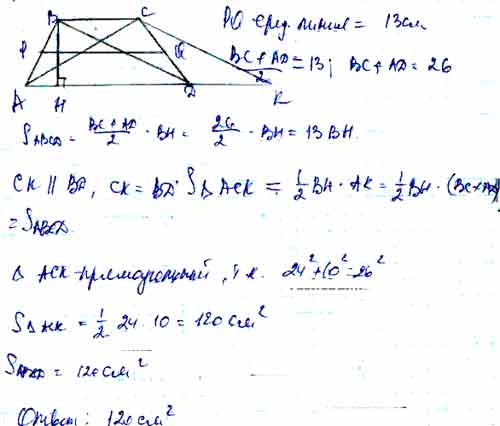 B C
P Q
A H D K
PQ сред. линия = 13см
BC + AD / 2 = 13; BC + AD = 26
S ABCD = BC + AD / 2 · BH = 26 / 2 · BH = 13 BH.
CK ∥ BD, CK = BD. S Δ ACK = 1/2 BH · AK = 1/2 BH · (BC + AD)
= S ABCD
Δ ACK прямоугольный, т.к. 24² + 10² = 26²
S Δ ACK = 1/2 24 · 10 = 120 см²
S ABCD = 120 см²
Ответ: 120 см²